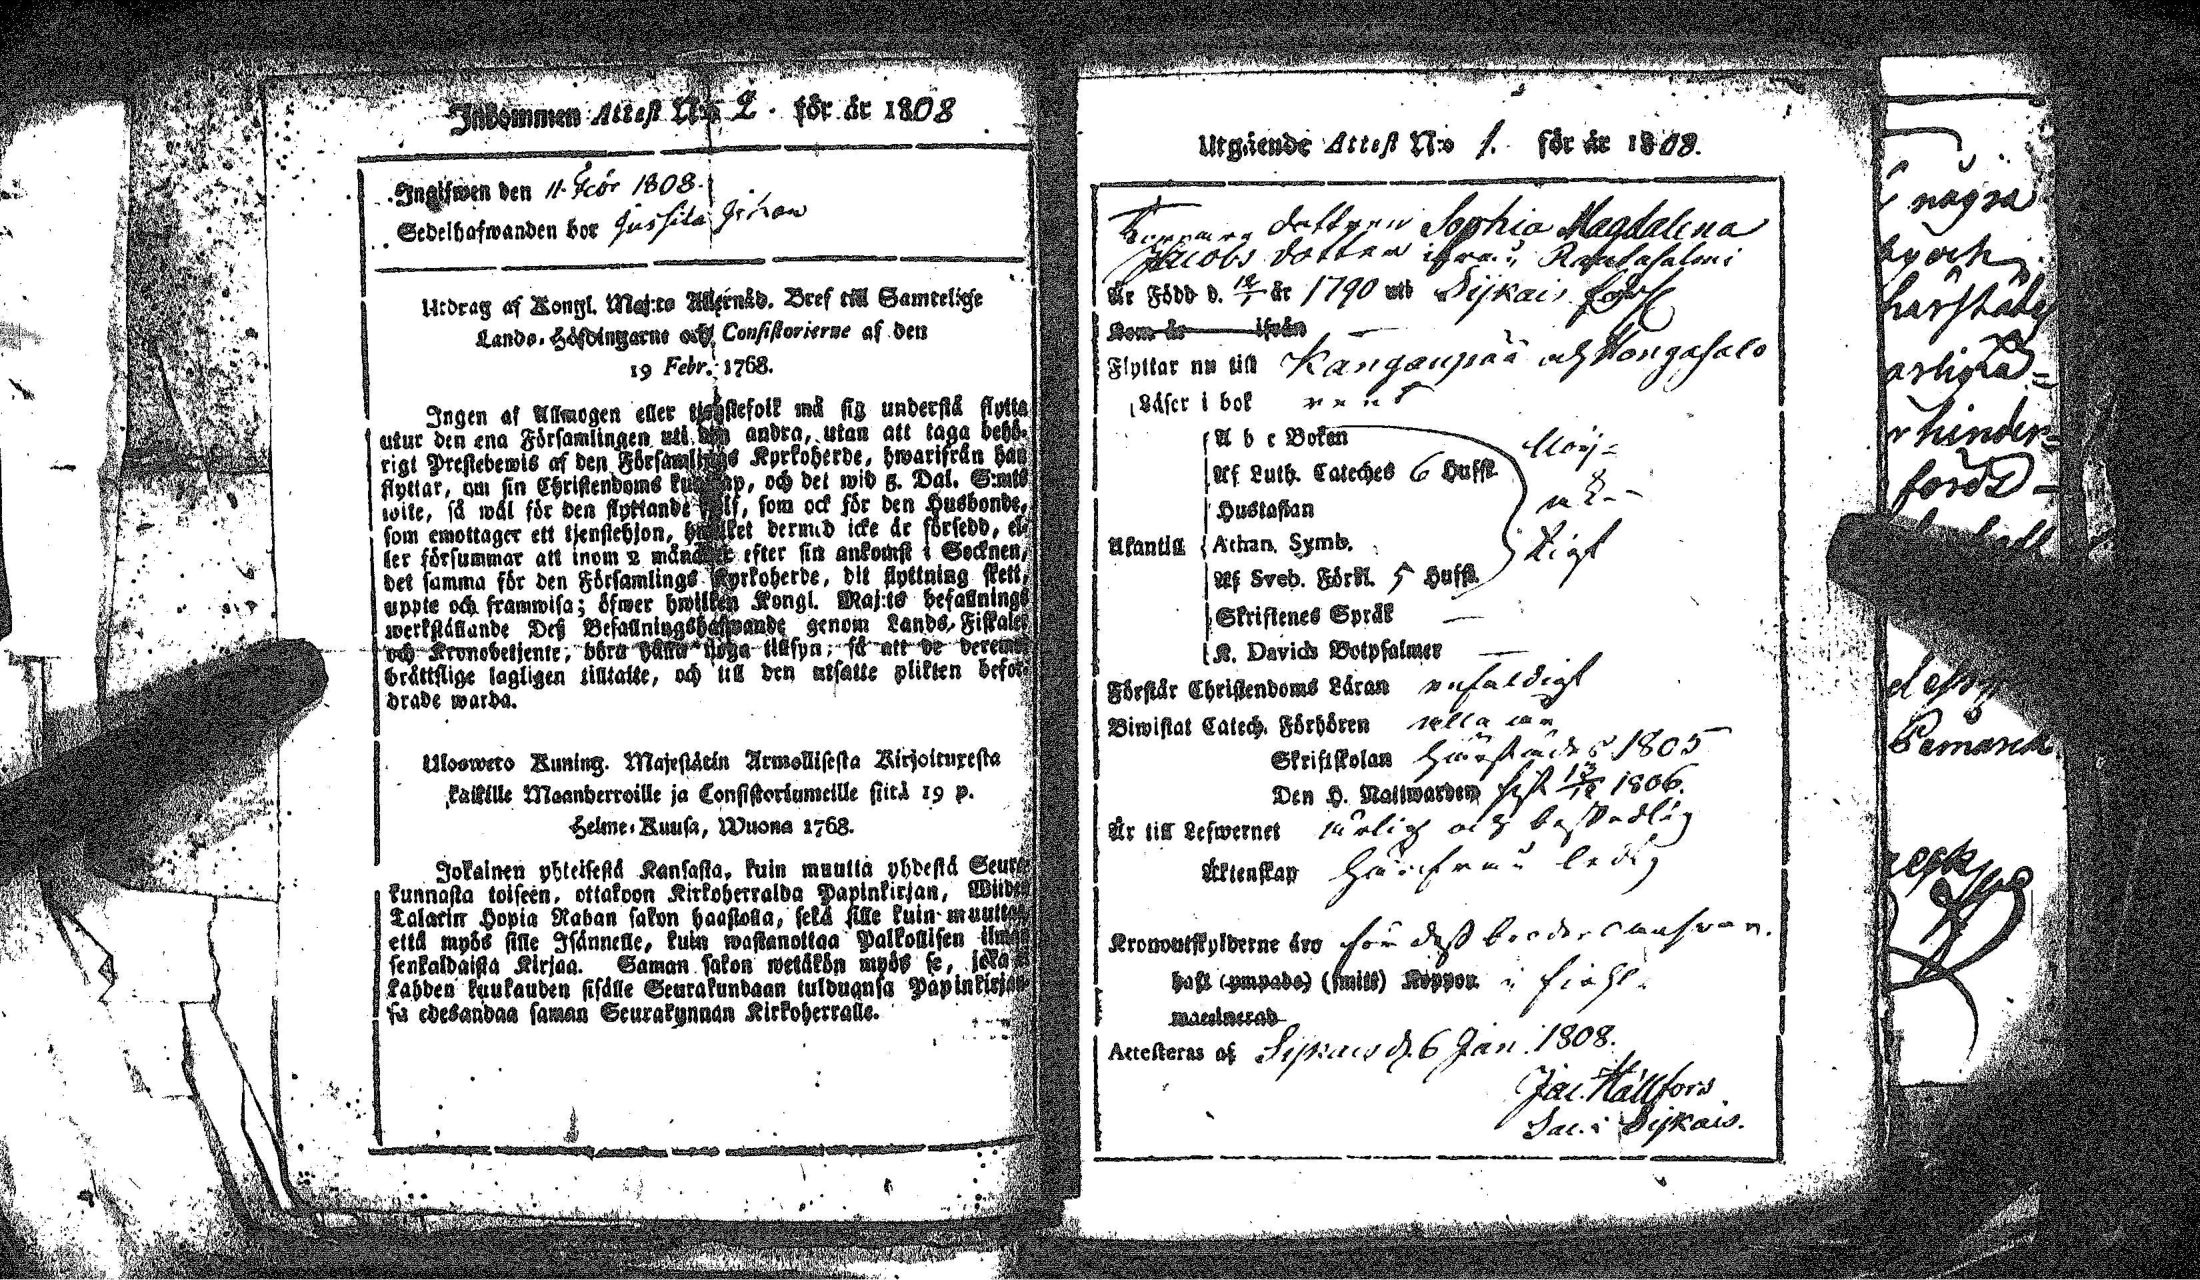 Inkommen Attest N:o 2. för år 1808
Ingifwen den 11. Febr 1808.
Sedelhafwanden bor Jussila
Utdrag af Kongl. Maj:ts Allernåd. Bref till Samtelige
Lands-Höfdingarne och Consistorierne af den
19 Febr. 1768.
Ingen af Allmogen eller tjenstefolk må sig understå flytta
utur den ena Församlingen uti den andra, utan att taga behö-
rigt Prestebewis af den Församlings Kyrkoherde, hwarifrån han
flyttar, om sin Christendoms kunskap, och det wid 5. Dal. S:mts
wite, så wäl för den flyttande sjelf, som ock för den Husbonde,
som emottager ett tjenstehjon, hwilket dermed icke är försedd, el-
ler försummar att inom 2 månader efter sin ankomst i Socknen,
det samma för den Församlings Kyrkoherde, dit flyttning skett,
uppte och framwisa; öfwer hwilken Kongl. Maj:ts befallnings
werkställande Deß Befallningshafwande genom Lands-Fiskaler
och Kronobetjente, böra hålla noga tillsyn; så att de deremot
bråttslige lagligen tilltalte, och till den utsatte plikten befor-
drade warda.
Ulosweto Kuning. Majestätin Armollisesta Kirjoituxesta
kaikille Maanherroille ja Consistoriumeille siitä 19 p.
Helme-Kuusa, Wuona 1768.
Jokainen yhteisestä Kansasta, kuin muutta yhdestä Seura-
kunnasta toiseen, ottakoon Kirkoherralda Papinkirjan, Wiiden
Talarin Hopia Rahan sakon haastolla, sekä sille kuin muuttaa,
että myös sille Isännelle, kuin wastanottaa Palkollisen ilman
senkaldaista Kirjaa. Saman sakon wetäkön myös se, joka ei
kahden kuukauden sisälle Seurakundaan tulduansa Papinkirjan-
sa edesandaa saman Seurakunnan Kirkoherralle.
Utgående Attest N:o 1. för år 1808.
dottren Sophia Magdalena
Jacobs dotter ifrån Rantasalmi
Är Född d. år 1790 uti Sijkais
Kom år ifrån —
Flyttar nu till Kangaspää och Mongasalo
Läser i bok rent
A b c Boken
Af Luth. Cateches 6 Hufst.
Hustaflan
Utantill Athan. Symb.
Af Sveb. Förkl. 5 Hufst.
Skriftenes Språk —
K. Davids Botpsalmer —
Förstår Christendoms Läran enfaldigt
Biwistat Catech. Förhören
Skriftskolan härstädes 1805
Den H. Nattwarden sist 1806.
Är till Lefwernet ärlig och beskedlig
Äktenskap härifrån ledig
Kronoutskylderne äro för deß
haft (ympade) (smitt) Koppor
vaccinerad
Attesteras af Sijkais d. 6 Jan. 1808.
Jac. Hällfors
Sac. i Sijkais.
några
och
härstädes